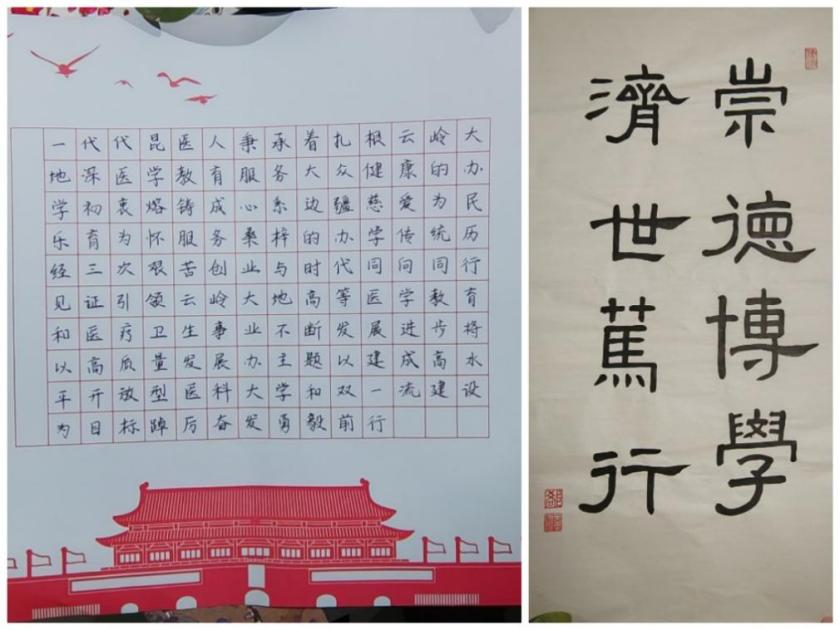 一代代昆医人秉承着扎根云岭大
地深医学教育服务大众健康的办
学初衷熔铸成心系边疆慈爱为民
乐育为怀服务桑梓的办学传统历
经三次艰苦创业与时代同向同行
见证引领云岭大地高等医学教育
和医疗卫生事业不断发展进步将
以高质量发展办主题以建成高水
平开放型医科大学和双一流建设
为目标踔厉奋发勇毅前行
崇德博學
濟世篤行